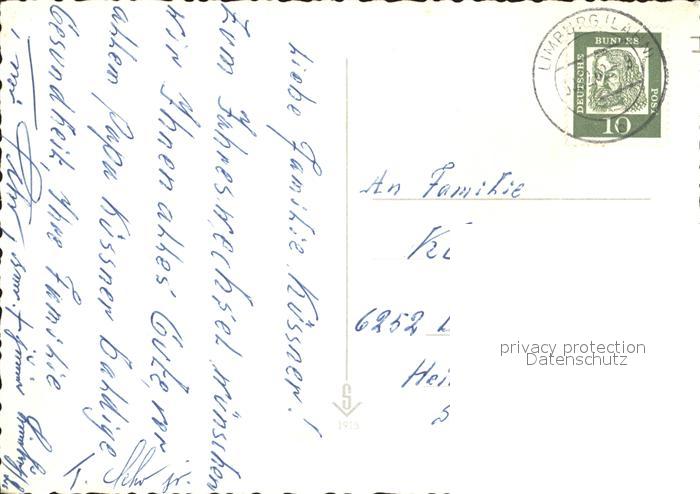 Liebe Familie Küssner!
Zum Jahreswechsel wünschen
wir Ihnen alles Gute, vor
allem Papa Küssner baldige
Gesundheit, Ihre Familie
An Familie
Kü
6252
Hei
LIMBURG (LAHN)
DEUTSCHE BUNDESPOST
10
S
1915
privacy protection
Datenschutz